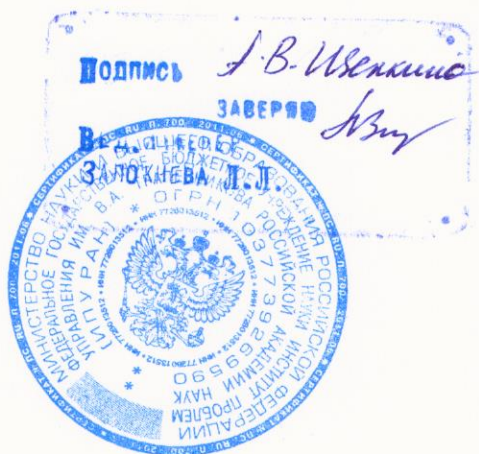 ПОДПИСЬ А.В. Щепкина
ЗАВЕРЯЮ
ЗАЛОЖНЕВА Л.Л.
МИНИСТЕРСТВО НАУКИ И ВЫСШЕГО ОБРАЗОВАНИЯ РОССИЙСКОЙ ФЕДЕРАЦИИ
ФЕДЕРАЛЬНОЕ ГОСУДАРСТВЕННОЕ БЮДЖЕТНОЕ УЧРЕЖДЕНИЕ НАУКИ ИНСТИТУТ ПРОБЛЕМ
УПРАВЛЕНИЯ ИМ. В.А. РОССИЙСКОЙ АКАДЕМИИ НАУК
(ИПУ РАН) * ОГРН 1037739269590 *